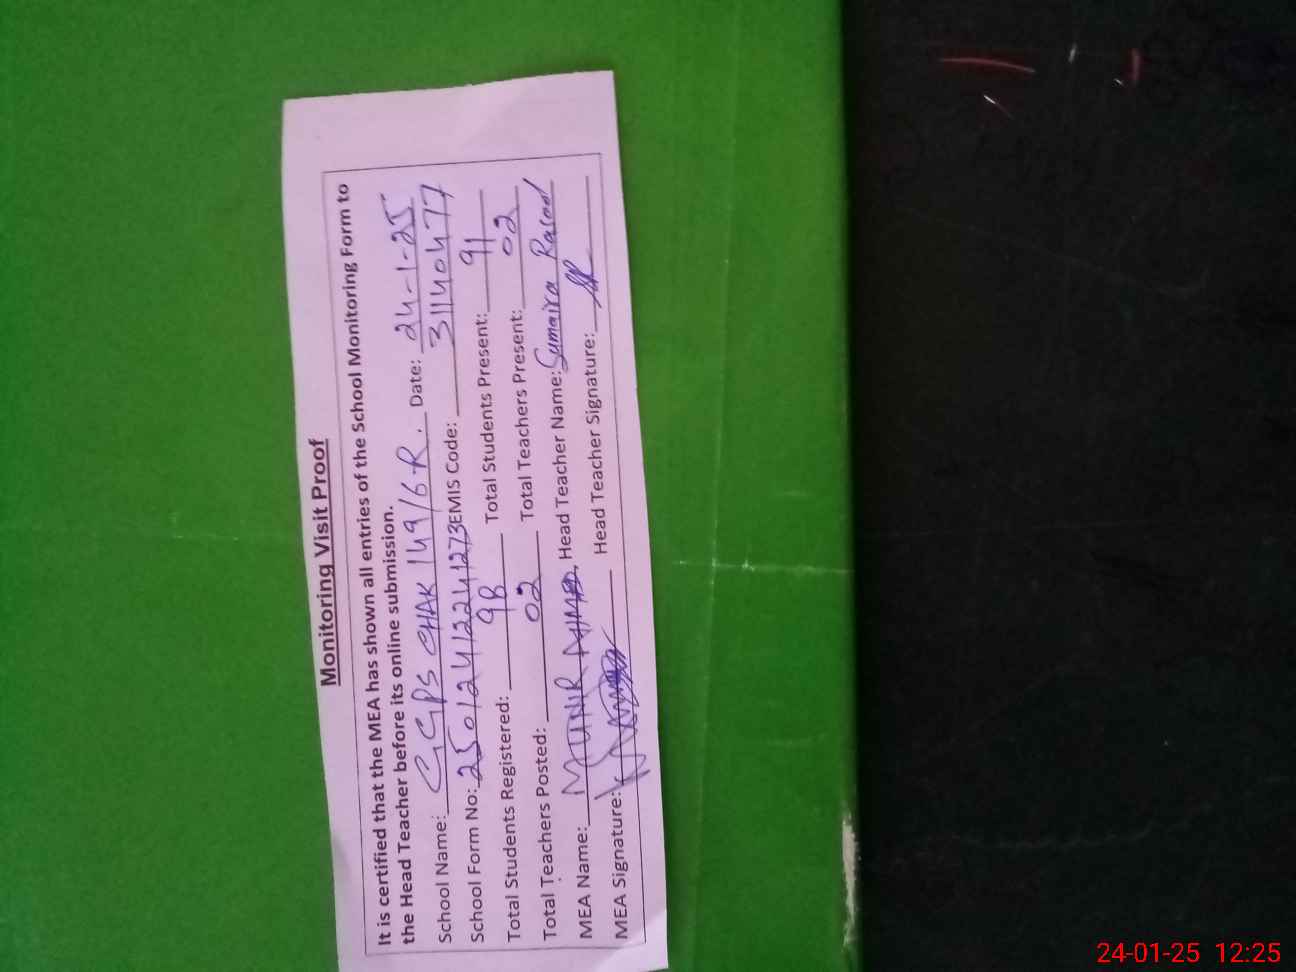 Monitoring Visit Proof
It is certified that the MEA has shown all entries of the School Monitoring Form to
the Head Teacher before its online submission.
School Name: GGPS CHAK 149/6-R. Date: 24-1-25
School Form No: 25012412241273 EMIS Code: 31140477
Total Students Registered: 98 Total Students Present: 91
Total Teachers Posted: 02 Total Teachers Present: 02
MEA Name: MUNIR AHMED. Head Teacher Name: Sumaira Rasool
MEA Signature: Head Teacher Signature: SR
24-01-25 12:25